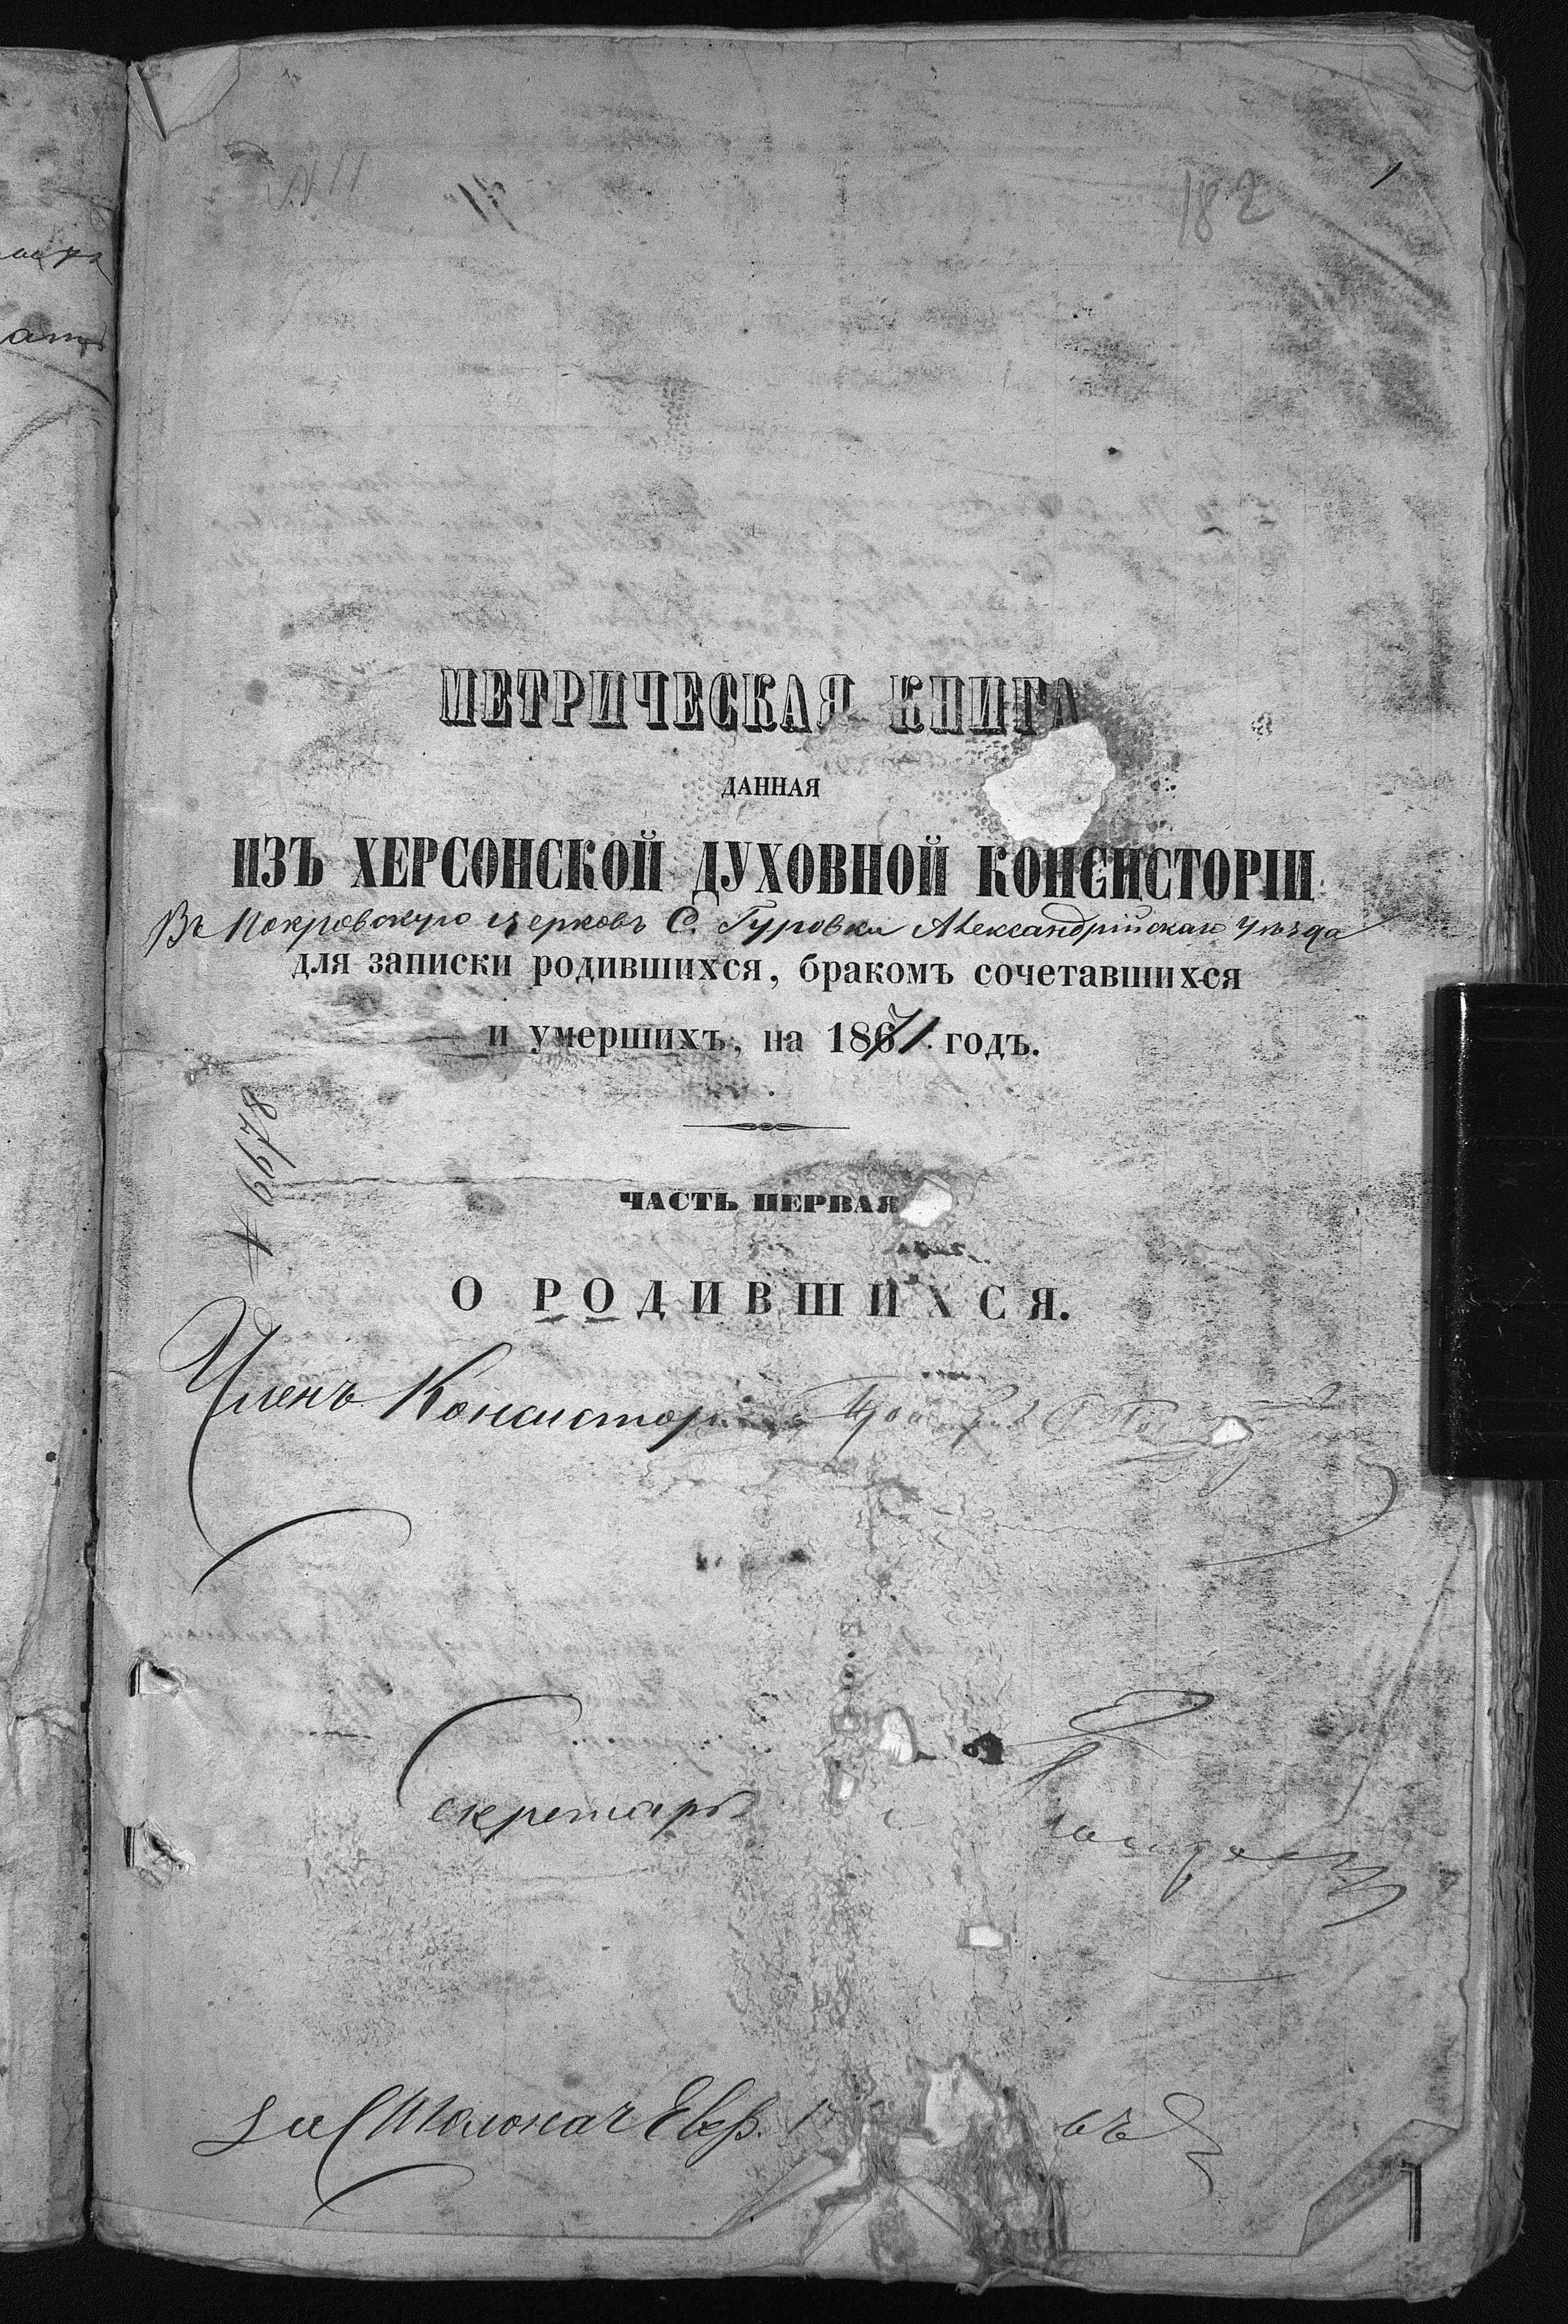 182
МЕТРИЧЕСКАЯ КНИГА
ДАННАЯ
ИЗЪ ХЕРСОНСКОЙ ДУХОВНОЙ КОНСИСТОРІИ
Въ Покровскую церковь С. Гуровки Александрійскаго Уѣзда
для записки родившихся, бракомъ сочетавшихся
и умершихъ, на 1871 годъ.
6678
ЧАСТЬ ПЕРВАЯ
О РОДИВШИХСЯ.
Членъ Консисторіи
Секретарь